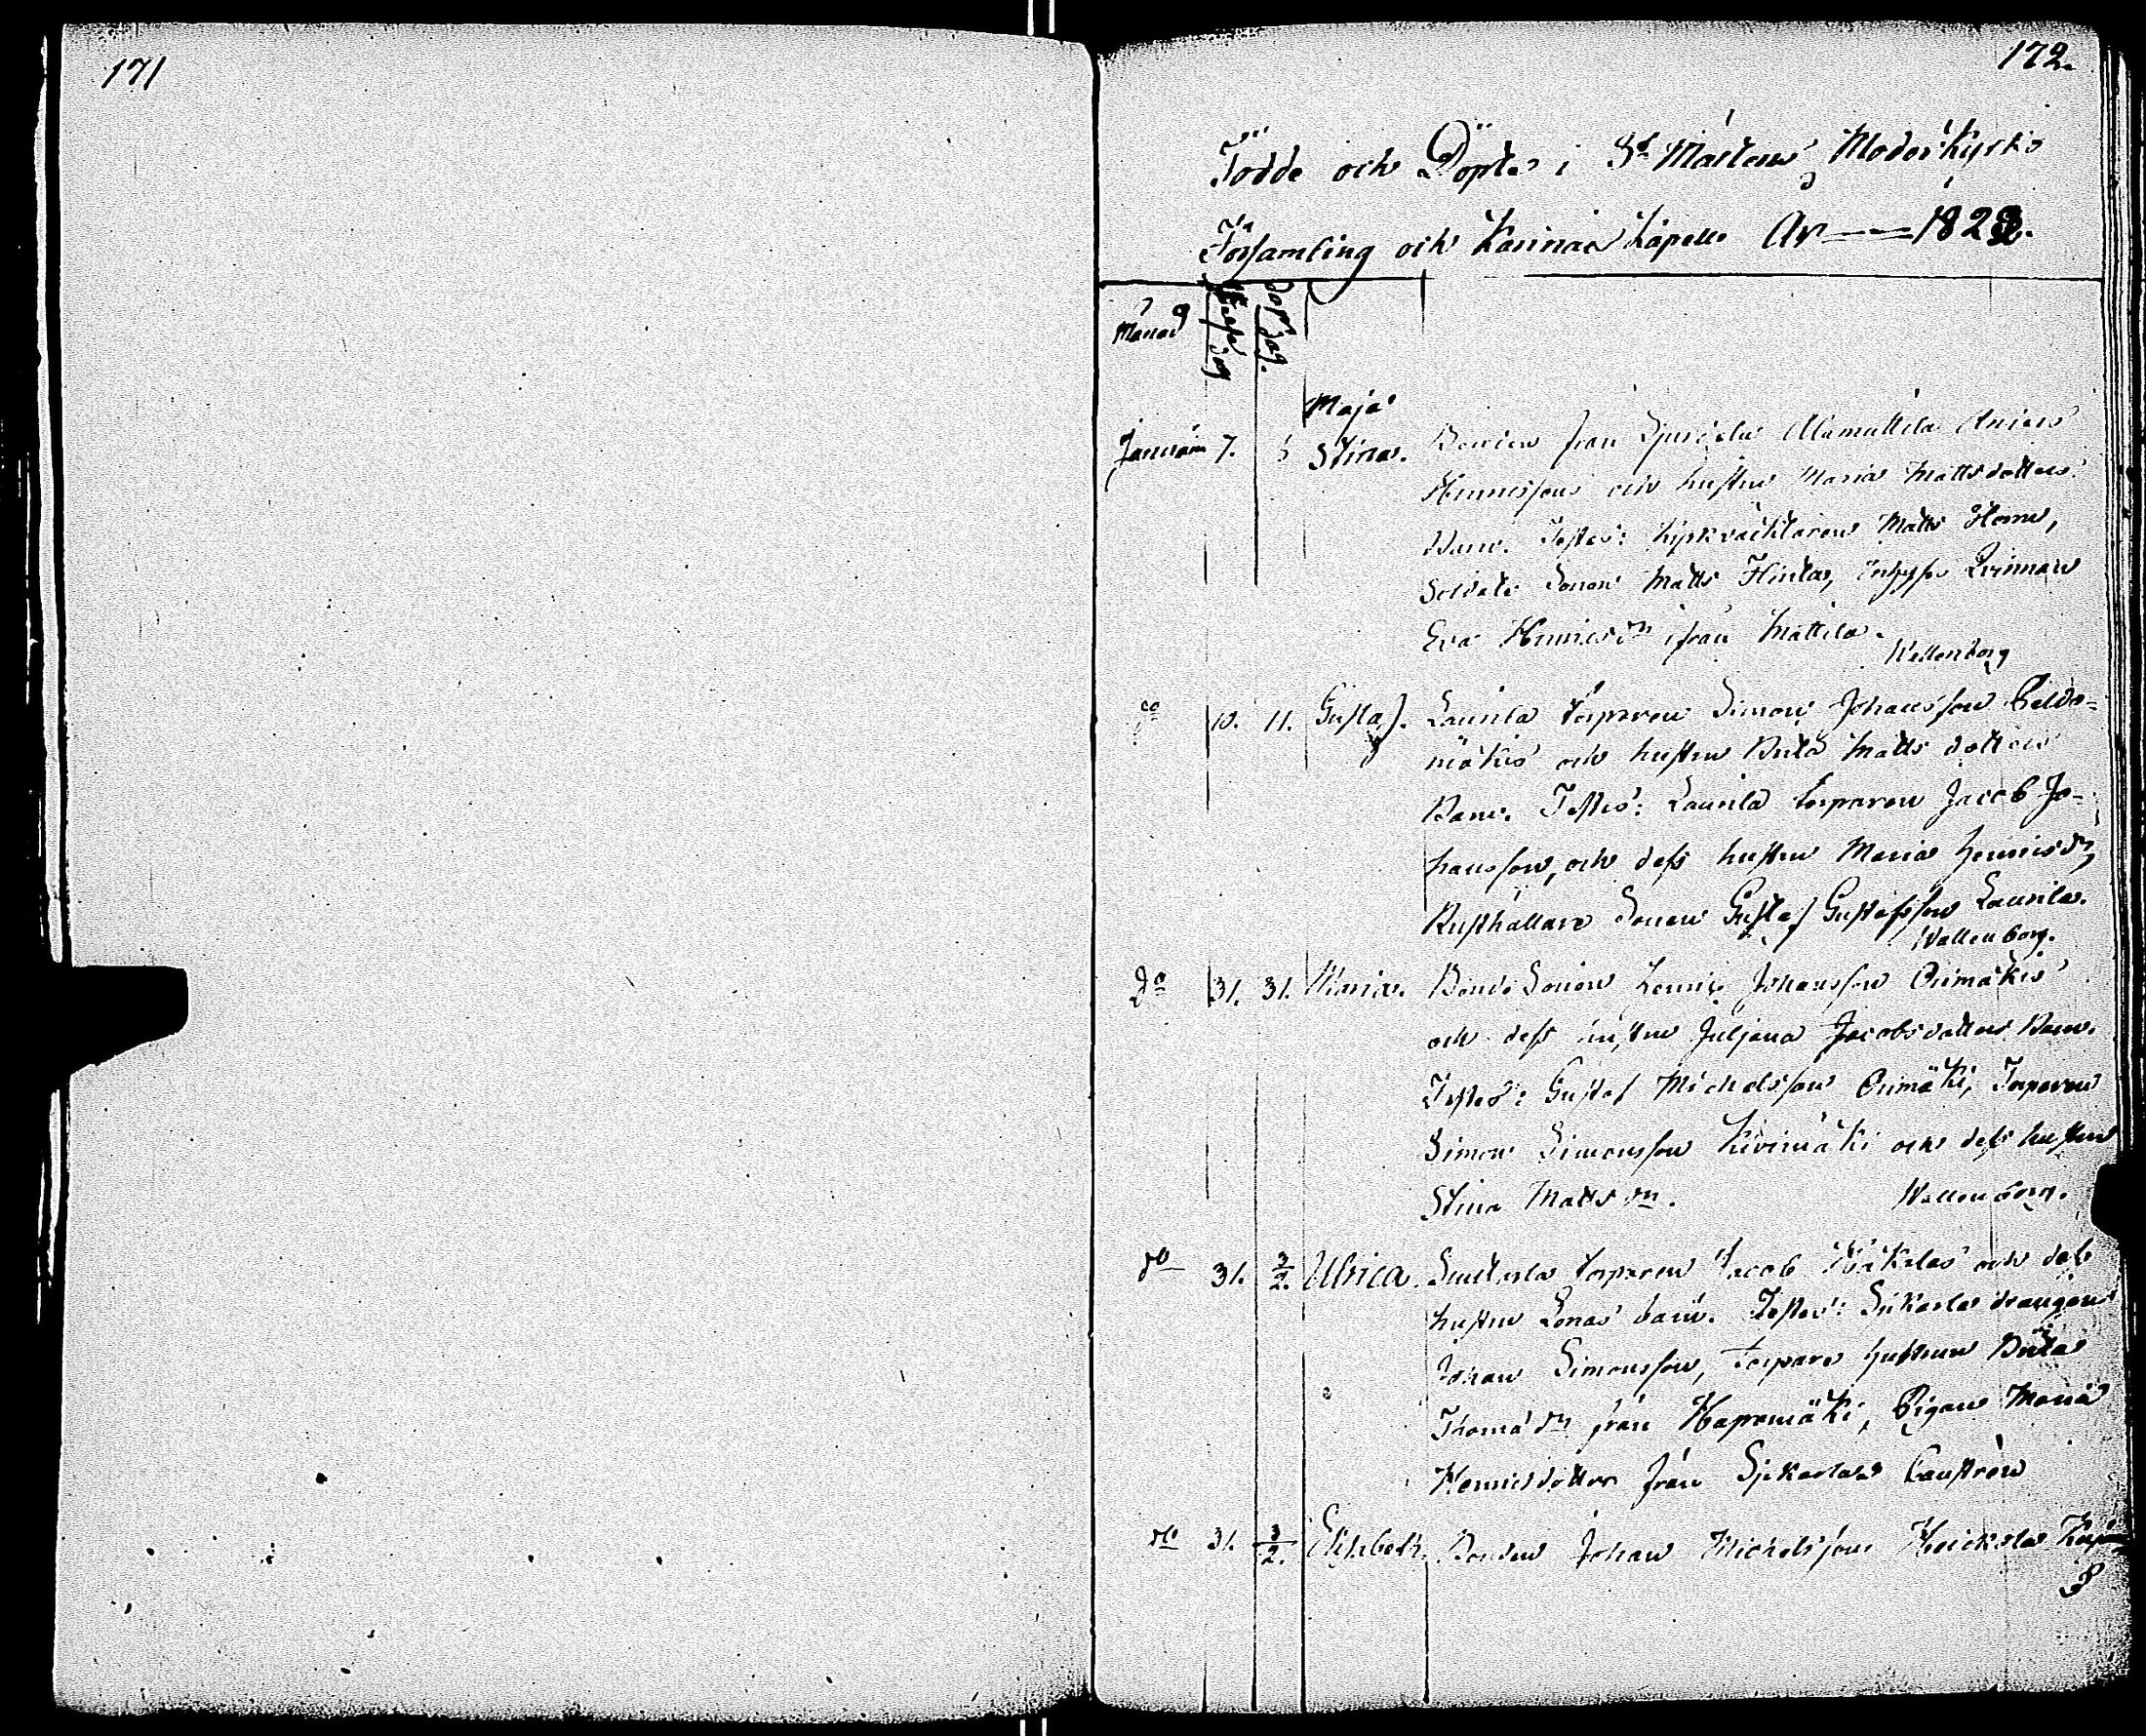 171
172.
Födde och Döpte i St Mårtens Moderkyrko
Församling och Karinais Kapell År — 1828.
Månad
Födelse dag
Döp. dag.
Maja
Januari 7. Stina. Bonden från Alamattila
Henricssons och hustru Maria Mattsdotters
Barn. Testes: Kyrkväcktaren Matts
Soldats Sonen Matts Flinta, Inhyses Qvinnan
Eva Henricsdr ifrån Mattila.
Wallenborg
do 10. 11. Gustaf. Laurila torparen Simon Johansson Peldo-
mäkis och hustru Brita Matts dotters
Barn. Testes: Laurila torparen Jacob Jo-
hansson, och dess hustru Maria Henricsdr,
Rusthållare Sonen Gustaf Gustafsson Laurila.
Wallenborg.
Do 31. 31. Maria. Bonde Sonen Henric Johansson Orimäkis
och dess hustru Juljana Jacobsdotters Barn.
Testes: Gustaf Michelsson Orimäki, Torparen
Simon Simonsson Kivimäki och dess hustru
Stina Matts dr.
Wallenborg.
do 31. 3/2. Ulrica. torparen Jacob och dess
hustru Lenas barn. Testes: drängen
Johan Simonsson, Torpare hustrun Brita
Thoma dr från Haparmäki, Pigan Maria
Henricsdotter från
do 31. 3/2. Elisabeth. Bonden Johan Michelsson